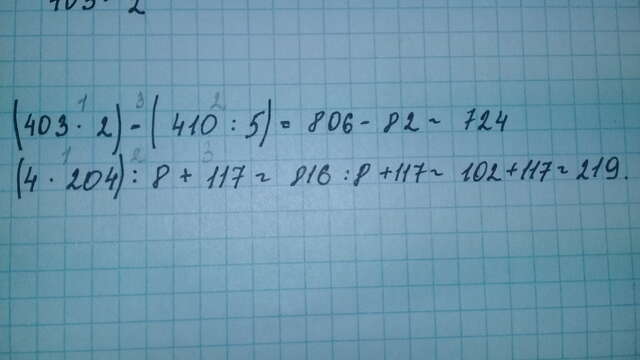 403 · 2
(403 · 2) - (410 : 5) = 806 - 82 = 724
(4 · 204) : 8 + 117 = 816 : 8 + 117 = 102 + 117 = 219.